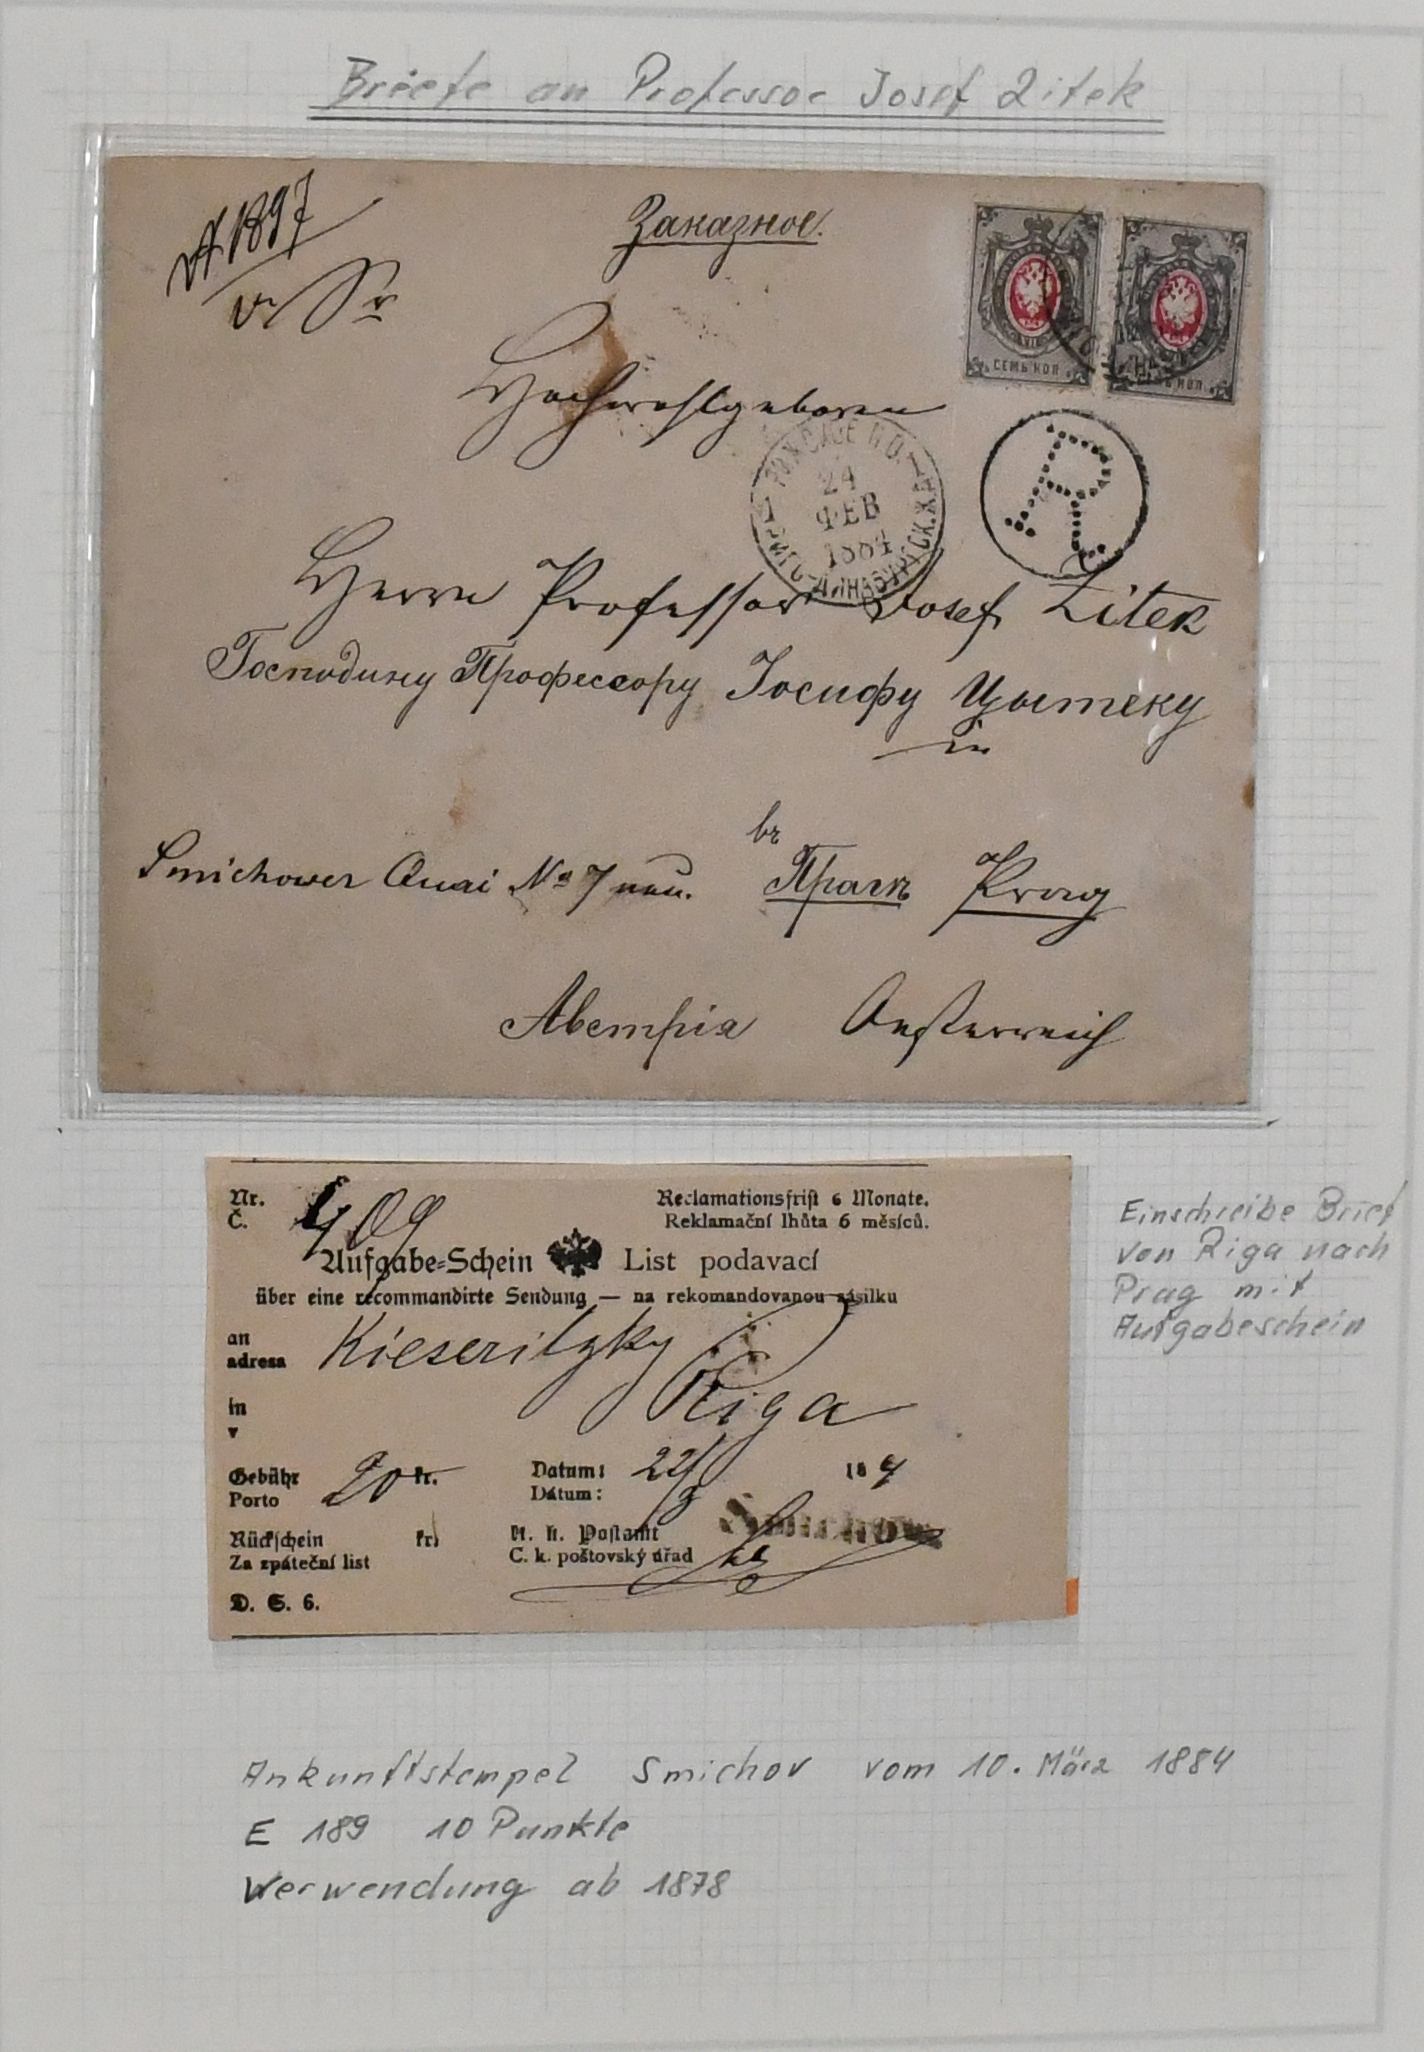 Briefe an Professor Josef Zitek
№ 1897
Заказное.
СЕМЬ КОП.
СЕМЬ КОП.
Hochwohlgeboren
24
ФЕВ
1884
R
Herrn Professor Josef Zitek
Господину Профессору Іосифу Цытеку
in
въ
Smichower Quai No 7 neu. Прагѣ Prag
Австрія Oesterreich
Nr. 409 Reclamationsfrist 6 Monate.
Č. Reklamační lhůta 6 měsíců.
Aufgabe-Schein List podavací
über eine recommandirte Sendung — na rekomandovanou zásilku
an
adresa Kieseritzky
in Riga
v
Gebühr 20 kr. Datum: 22/3 1884
Porto Dátum:
Rückschein kr. K. k. Postamt
Za zpáteční list C. k. poštovský úřad
D. S. 6.
Einschreibe Brief
von Riga nach
Prag mit
Aufgabeschein
Ankunftstempel Smichov vom 10. März 1884
E 189 10 Punkte
Verwendung ab 1878